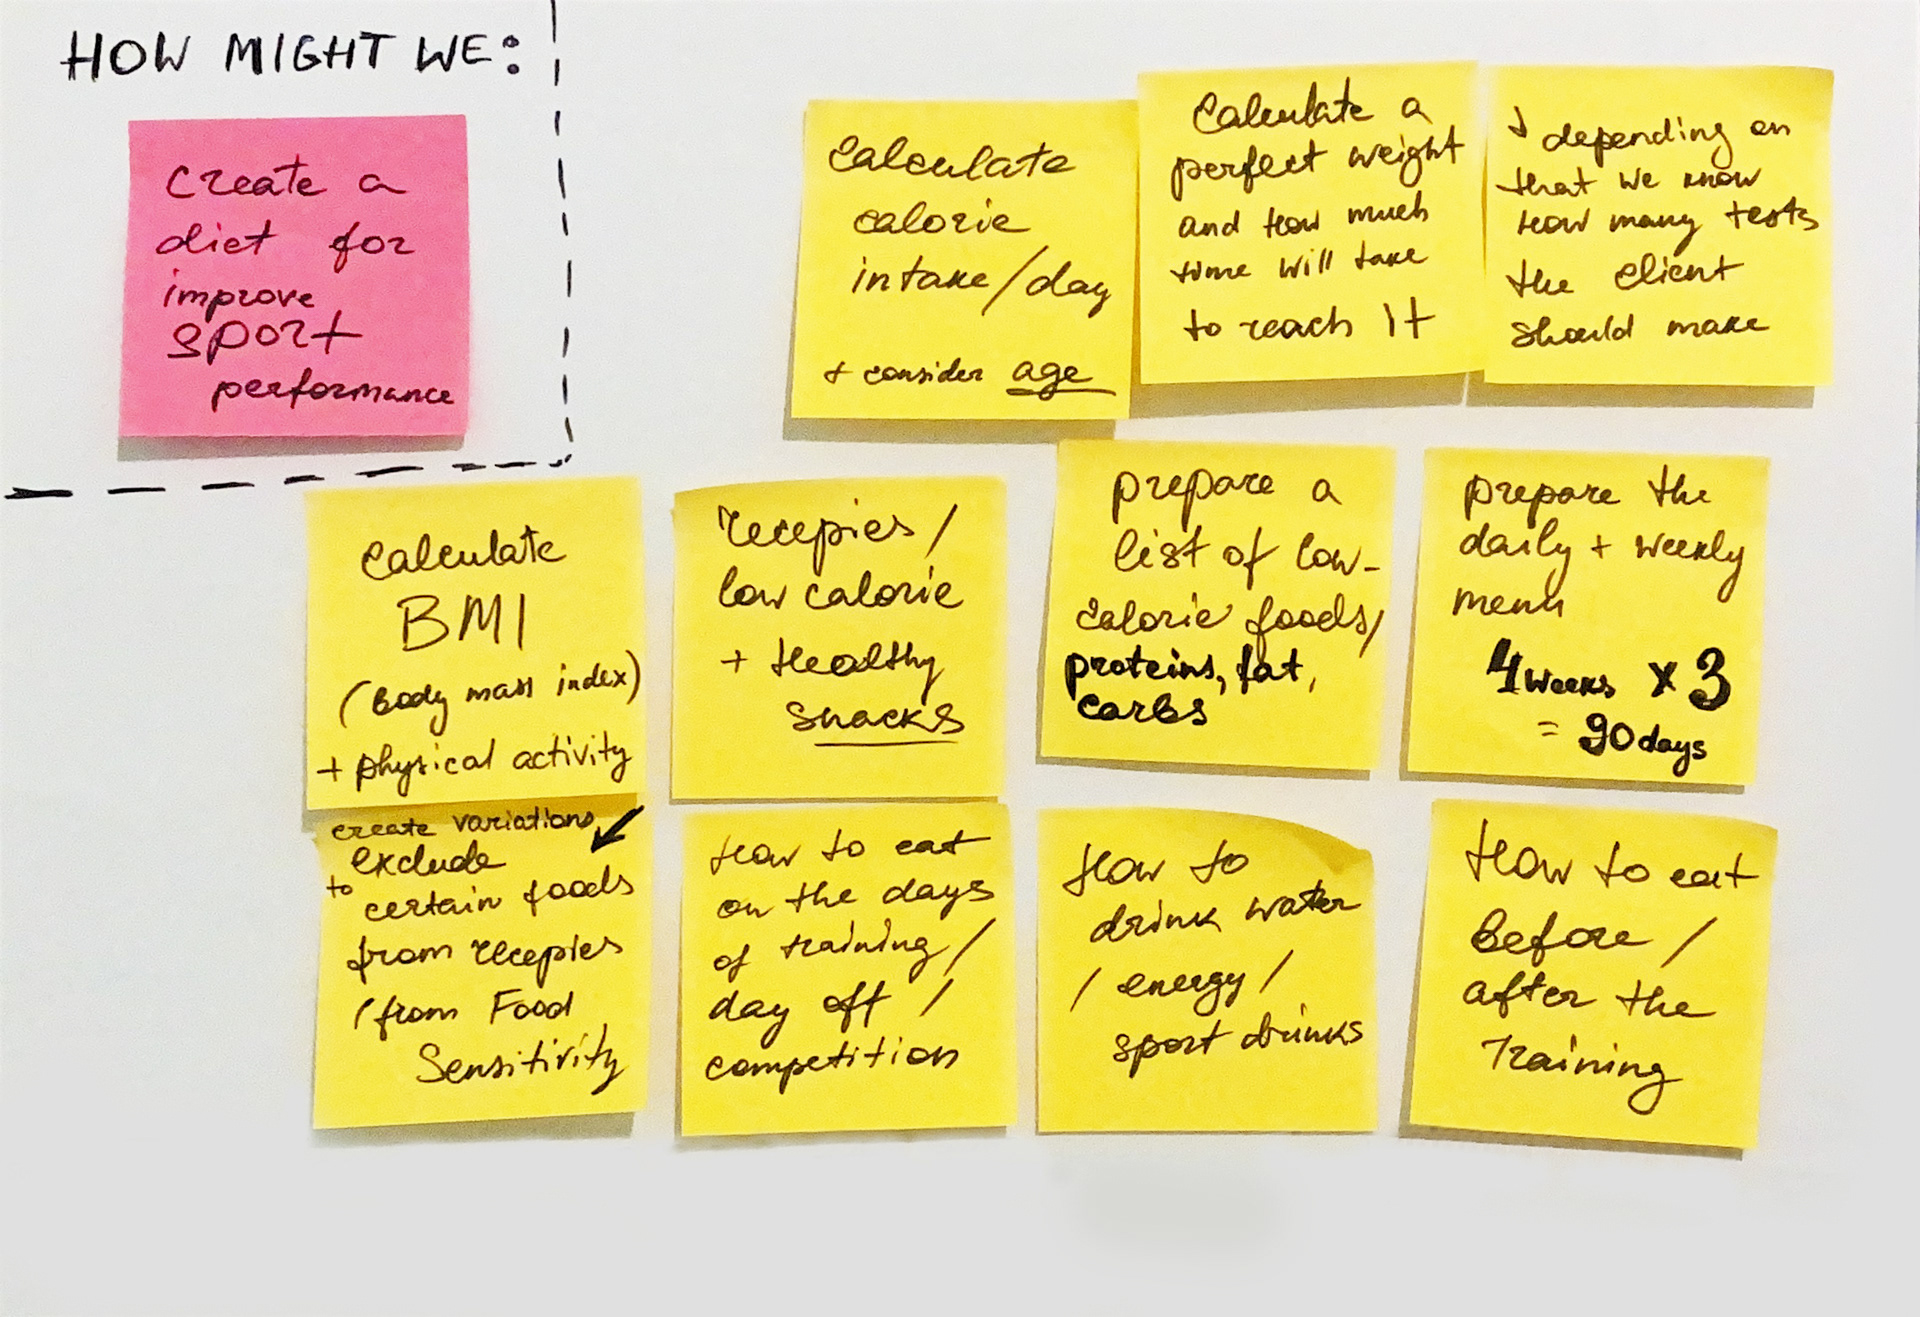 HOW MIGHT WE:
create a
diet for
improve
sport
performance
calculate
calorie
intake/day
+ consider age
Calculate a
perfect weight
and how much
time will take
to reach it
↓ depending on
that we know
how many tests
the client
should make
calculate
BMI
(Body mass index)
+ physical activity
recepies/
low calorie
+ Healthy
snacks
prepare a
list of low-
calorie foods/
proteins, fat,
carbs
prepare the
daily + weekly
menu
4 weeks x 3
= 90 days
create variations
to exclude
certain foods
from recepies
(from Food
Sensitivity
How to eat
on the days
of training/
day off /
competition
How to
drink water
/ energy /
sport drinks
How to eat
Before /
after the
Training